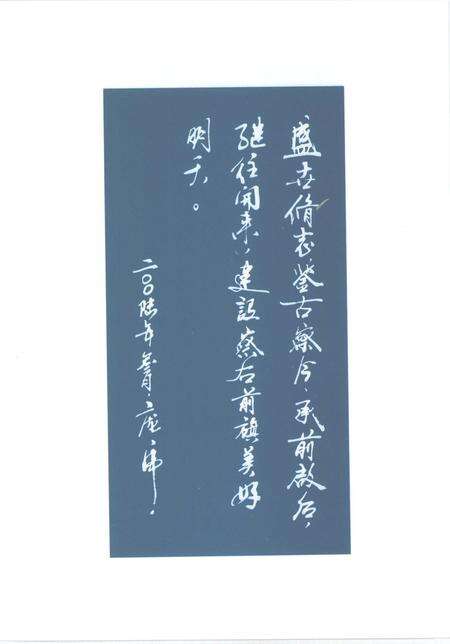 盛世脩志,鉴古察今,承前啟后,
继往開来,建設察右前旗美好
明天。
二〇〇陆年叁月